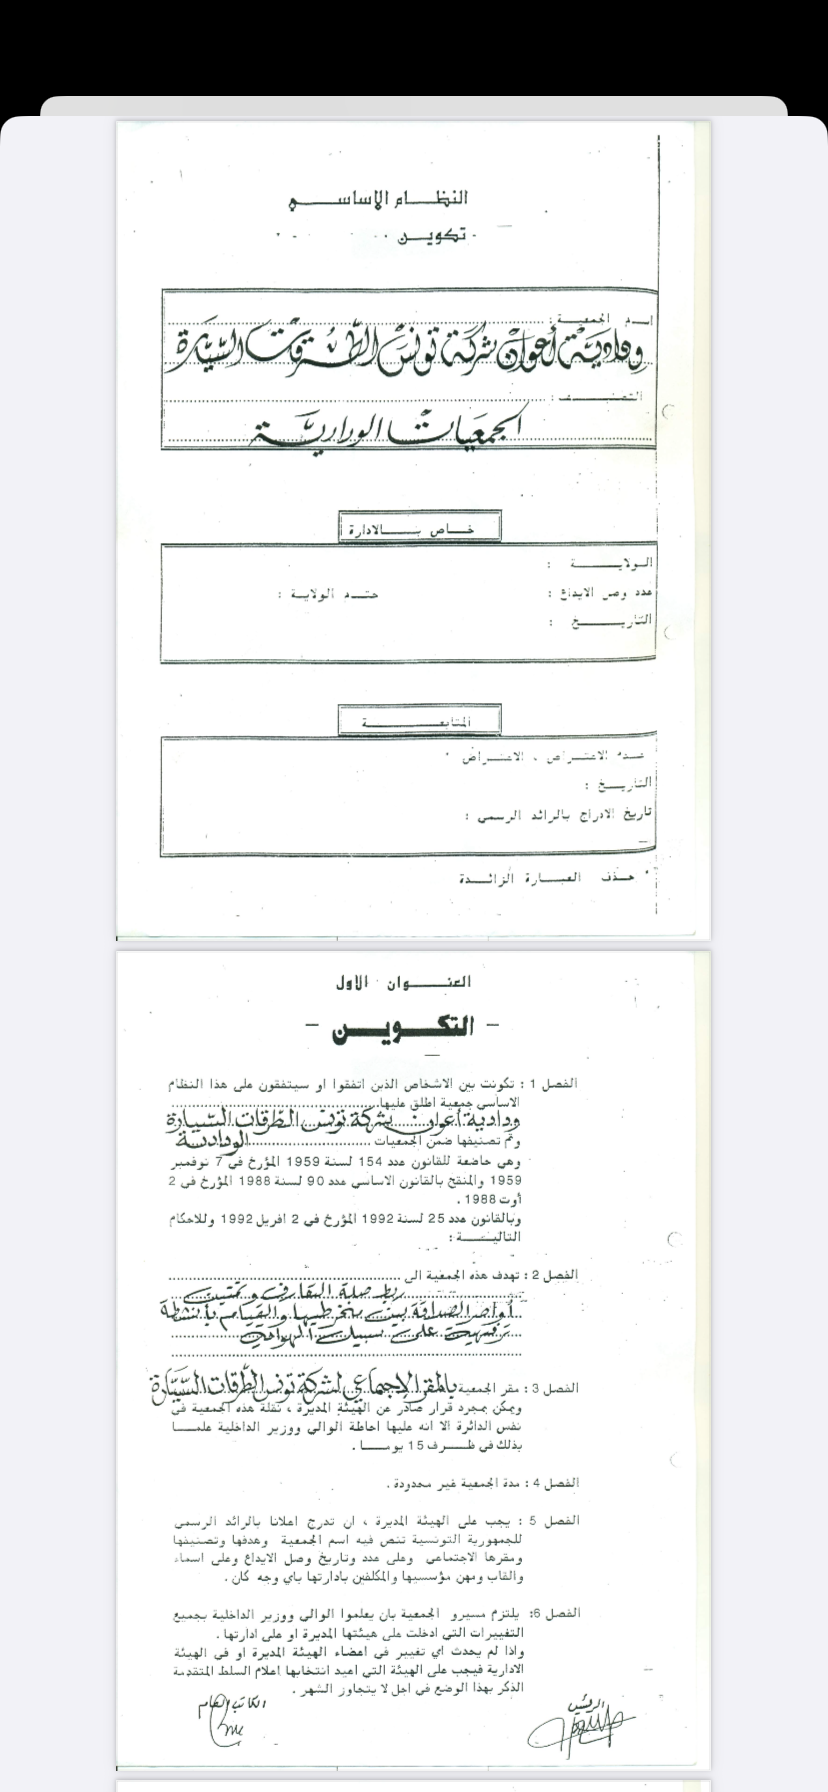 النظام الاساسي
- تكوين
اسم الجمعية :
ودادية أعوان شركة تونس الطرقات السيارة
التصنيف :
الجمعيات الودادية
خاص بالادارة
الولاية :
عدد وصل الايداع : ختم الولاية :
التاريخ :
المتابعة
عدم الاعتراض ، الاعتراض *
التاريخ :
تاريخ الادراج بالرائد الرسمي :
* حذف العبارة الزائدة
العنوان الاول
- التكوين -
الفصل 1 : تكونت بين الاشخاص الذين اتفقوا او سيتفقون على هذا النظام
الاساسي جمعية اطلق عليها
ودادية أعوان شركة تونس الطرقات السيارة
وتم تصنيفها ضمن الجمعيات الودادية
وهي خاضعة للقانون عدد 154 لسنة 1959 المؤرخ في 7 نوفمبر
1959 والمنقح بالقانون الاساسي عدد 90 لسنة 1988 المؤرخ في 2
أوت 1988 .
وبالقانون عدد 25 لسنة 1992 المؤرخ في 2 افريل 1992 وللاحكام
التالية :
الفصل 2 : تهدف هذه الجمعية الى
ربط صلة التعارف و تمتين
أواصر الصداقة بين منخرطيها والقيام بأنشطة
ترفيهية على سبيل الهواية
الفصل 3 : مقر الجمعية بالمقر الإجتماعي لشركة تونس الطرقات السيّارة
ويمكن بمجرد قرار صادر عن الهيئة المديرة ، نقلة هذه الجمعية في
نفس الدائرة الا انه عليها احاطة الوالي ووزير الداخلية علما
بذلك في ظرف 15 يوما .
الفصل 4 : مدة الجمعية غير محدودة .
الفصل 5 : يجب على الهيئة المديرة ، ان تدرج اعلانا بالرائد الرسمي
للجمهورية التونسية تنص فيه اسم الجمعية وهدفها وتصنيفها
ومقرها الاجتماعي وعلى عدد وتاريخ وصل الايداع وعلى اسماء
والقاب ومهن مؤسسيها والمكلفين بادارتها باي وجه كان .
الفصل 6: يلتزم مسيرو الجمعية بان يعلموا الوالي ووزير الداخلية بجميع
التغييرات التي ادخلت على هيئتها المديرة او على ادارتها .
واذا لم يحدث اي تغيير في اعضاء الهيئة المديرة او في الهيئة
الادارية فيجب على الهيئة التي اعيد انتخابها اعلام السلط المتقدمة
الذكر بهذا الوضع في اجل لا يتجاوز الشهر .
الرئيس الكاتب العام